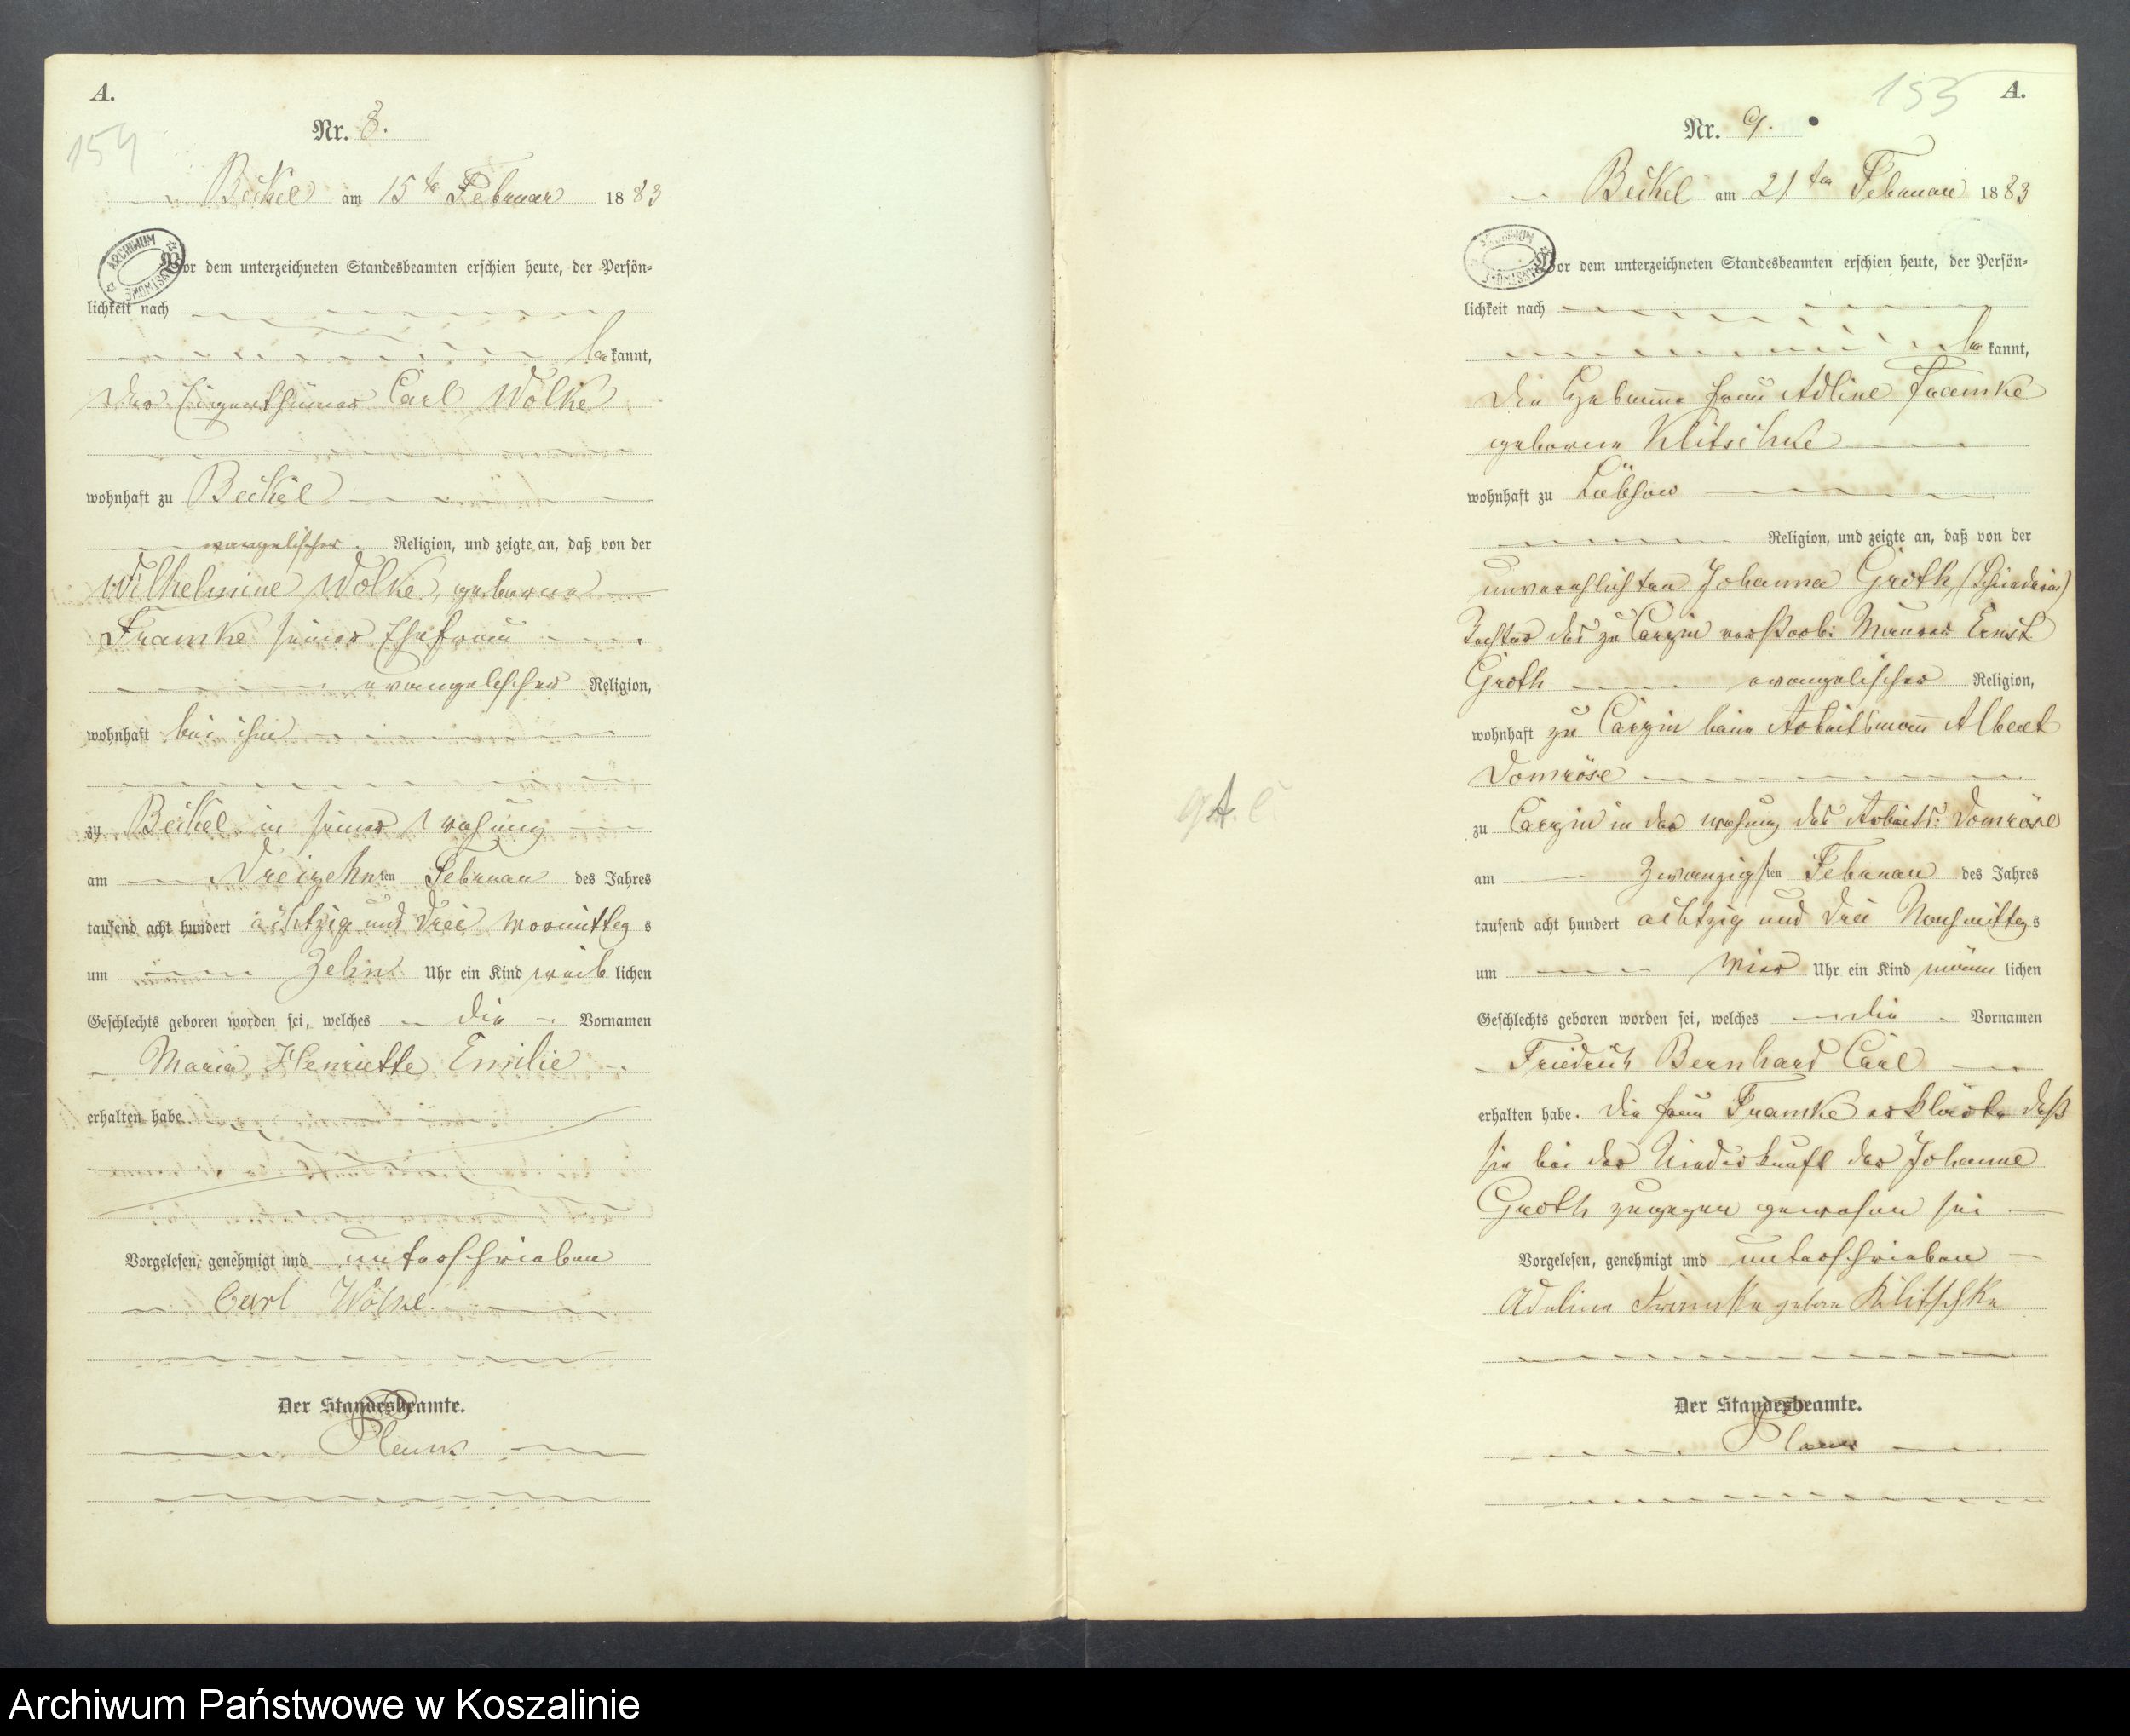 A.
154
Nr. 8.
Beckel am 15ten Februar 1883
ARCHIWUM
Vor dem unterzeichneten Standesbeamten erschien heute, der Persön=
lichkeit nach
be kannt,
der Eigenthümer Carl Wölke
wohnhaft zu Beckel
evangelischer Religion, und zeigte an, daß von der
Wilhelmine Wölke, geborene
Framke seiner Ehefrau
evangelischer Religion,
wohnhaft bei ihm
zu Beckel in seiner Wohnung
am Dreizehnten Februar des Jahres
tausend acht hundert achtzig und drei Vormittag s
um Zehn Uhr ein Kind weib lichen
Geschlechts geboren worden sei, welches die Vornamen
Maria Henriette Emilie
erhalten habe
Vorgelesen, genehmigt und unterschrieben
Carl Wölke
Der Standesbeamte.
A.
Nr. 9.
Beckel am 21ten Februar 1883
Vor dem unterzeichneten Standesbeamten erschien heute, der Persön=
lichkeit nach
be kannt,
die Hebamme Frau Adline Framke
geborene Klitschke
wohnhaft zu Lübzow
Religion, und zeigte an, daß von der
unverehlichten Johanna Groth,
Tochter des zu Carzin verstorb: Maurer Ernst
Groth evangelischer Religion,
wohnhaft zu Carzin beim Arbeitsmann Albert
Domröse
zu Carzin in der Wohnung des Arbeits: Domröse
am Zwanzigsten Februar des Jahres
tausend acht hundert achtzig und drei Nachmittag s
um Vier Uhr ein Kind männ lichen
Geschlechts geboren worden sei, welches die Vornamen
Friedrich Bernhard Carl
erhalten habe. Die Frau Framke erklärte daß
sie bei der Niederkunft der Johanne
Groth zugegen gewesen sei
Vorgelesen, genehmigt und unterschrieben
Adeline Framke geborn Klitschke
Der Standesbeamte.
Archiwum Państwowe w Koszalinie